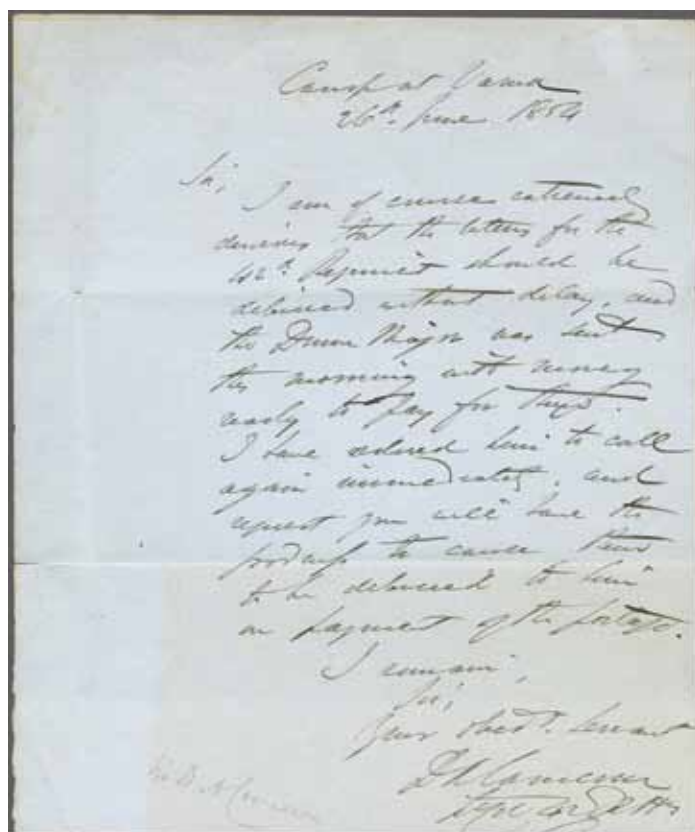 Camp at Varna
26th. June 1854
Sir,
I am of course extremely
desirous that the letters for the
42d. Regiment should be
delivered without delay, and
the Drum Major was sent
this morning with money
ready to pay for them.
I have ordered him to call
again immediately, and
request you will have the
goodness to cause them
to be delivered to him
on payment of the postage.
I remain,
Sir,
Your Obedt. Servant
D A Cameron